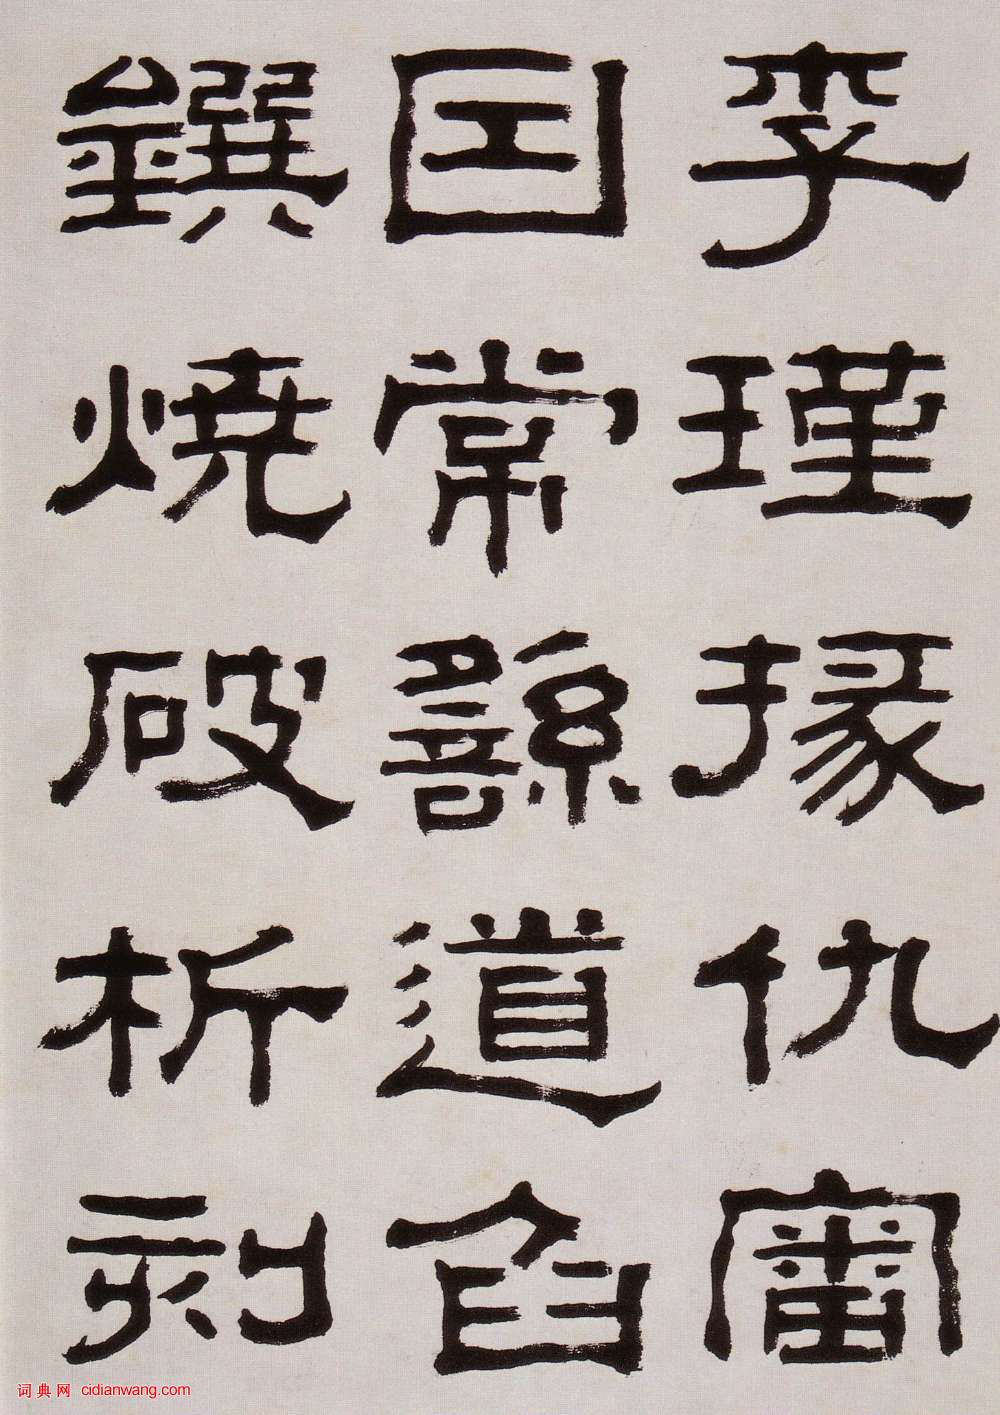 李瑾掾仇審
囙常繇道臽
鐉燒破析刻
词典网 cidianwang.com